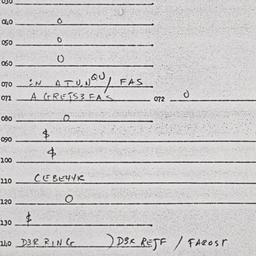 030
040 0
050 0
060 0
070 IN ATUNQU / FAS
071 A GREJS3FAS 072 0
080 0
090 $
100 $
110 CEBE4YK
120 0
130 $
140 D3R RING ) D3K REJF / FAROST